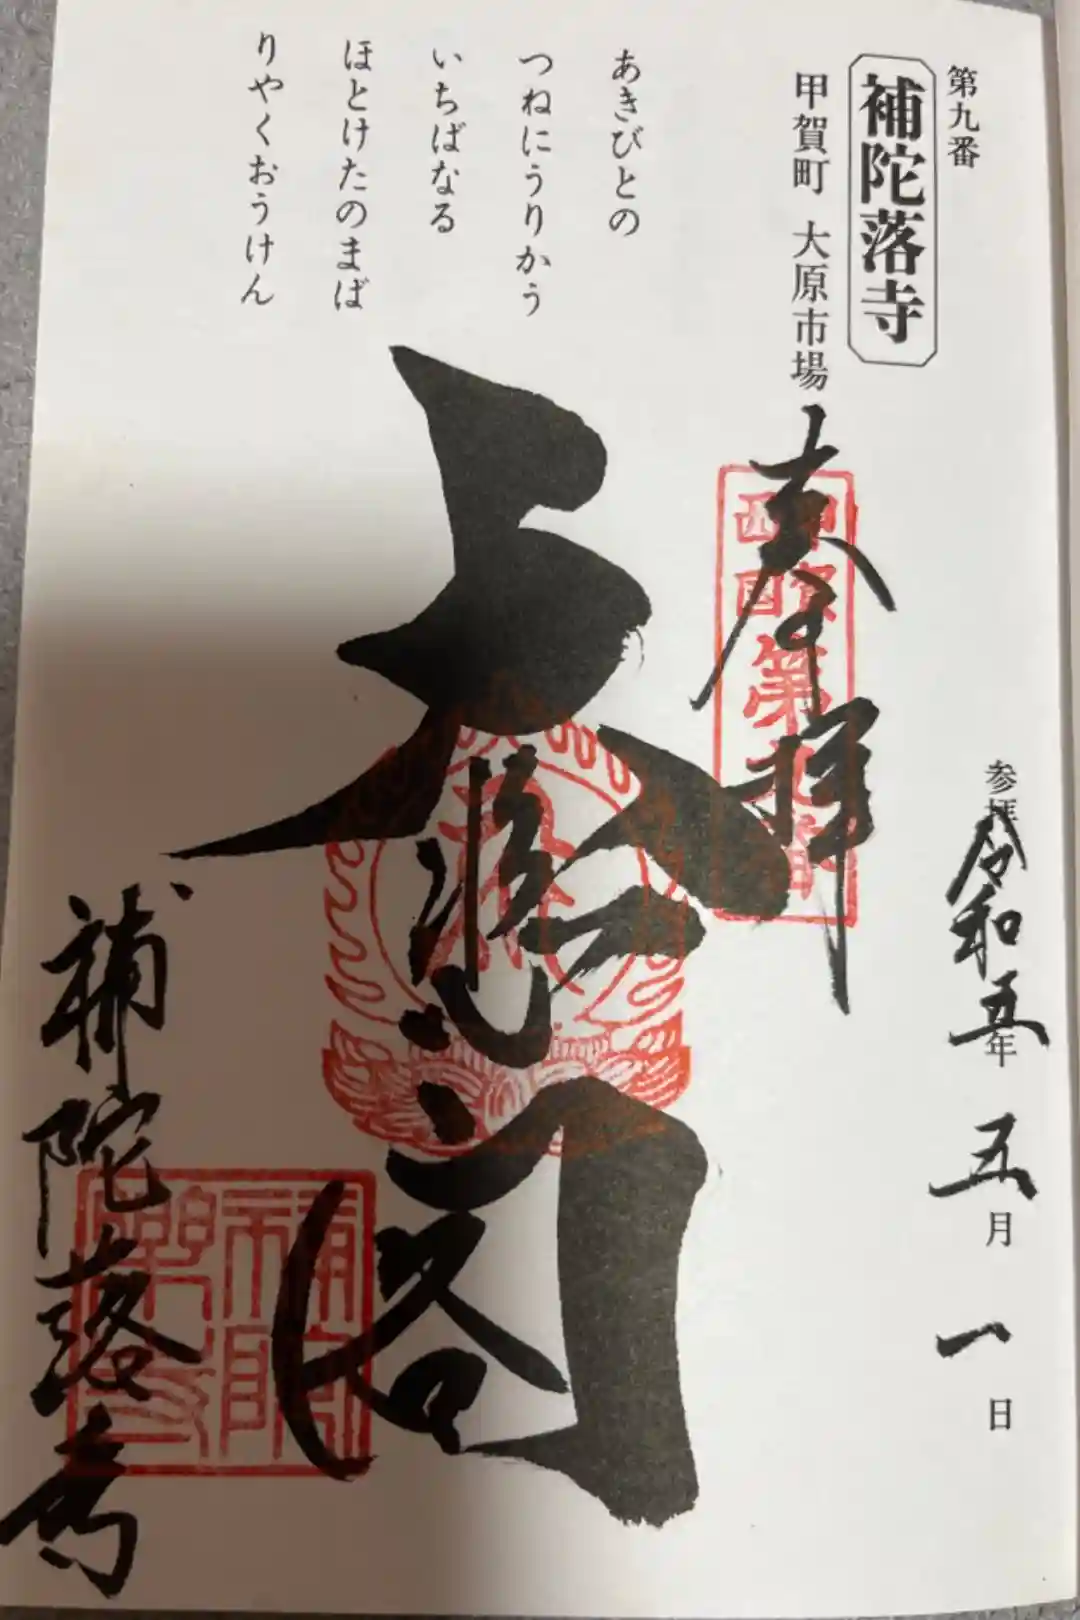 第九番
補陀落寺
甲賀町 大原市場
あきびとの
つねにうりかう
いちばなる
ほとけたのまば
りやくおうけん
奉拝
甲賀
西国
第九番
参拝
令和五年 五月 一日
大悲閣
補陀落寺
補陀
落寺